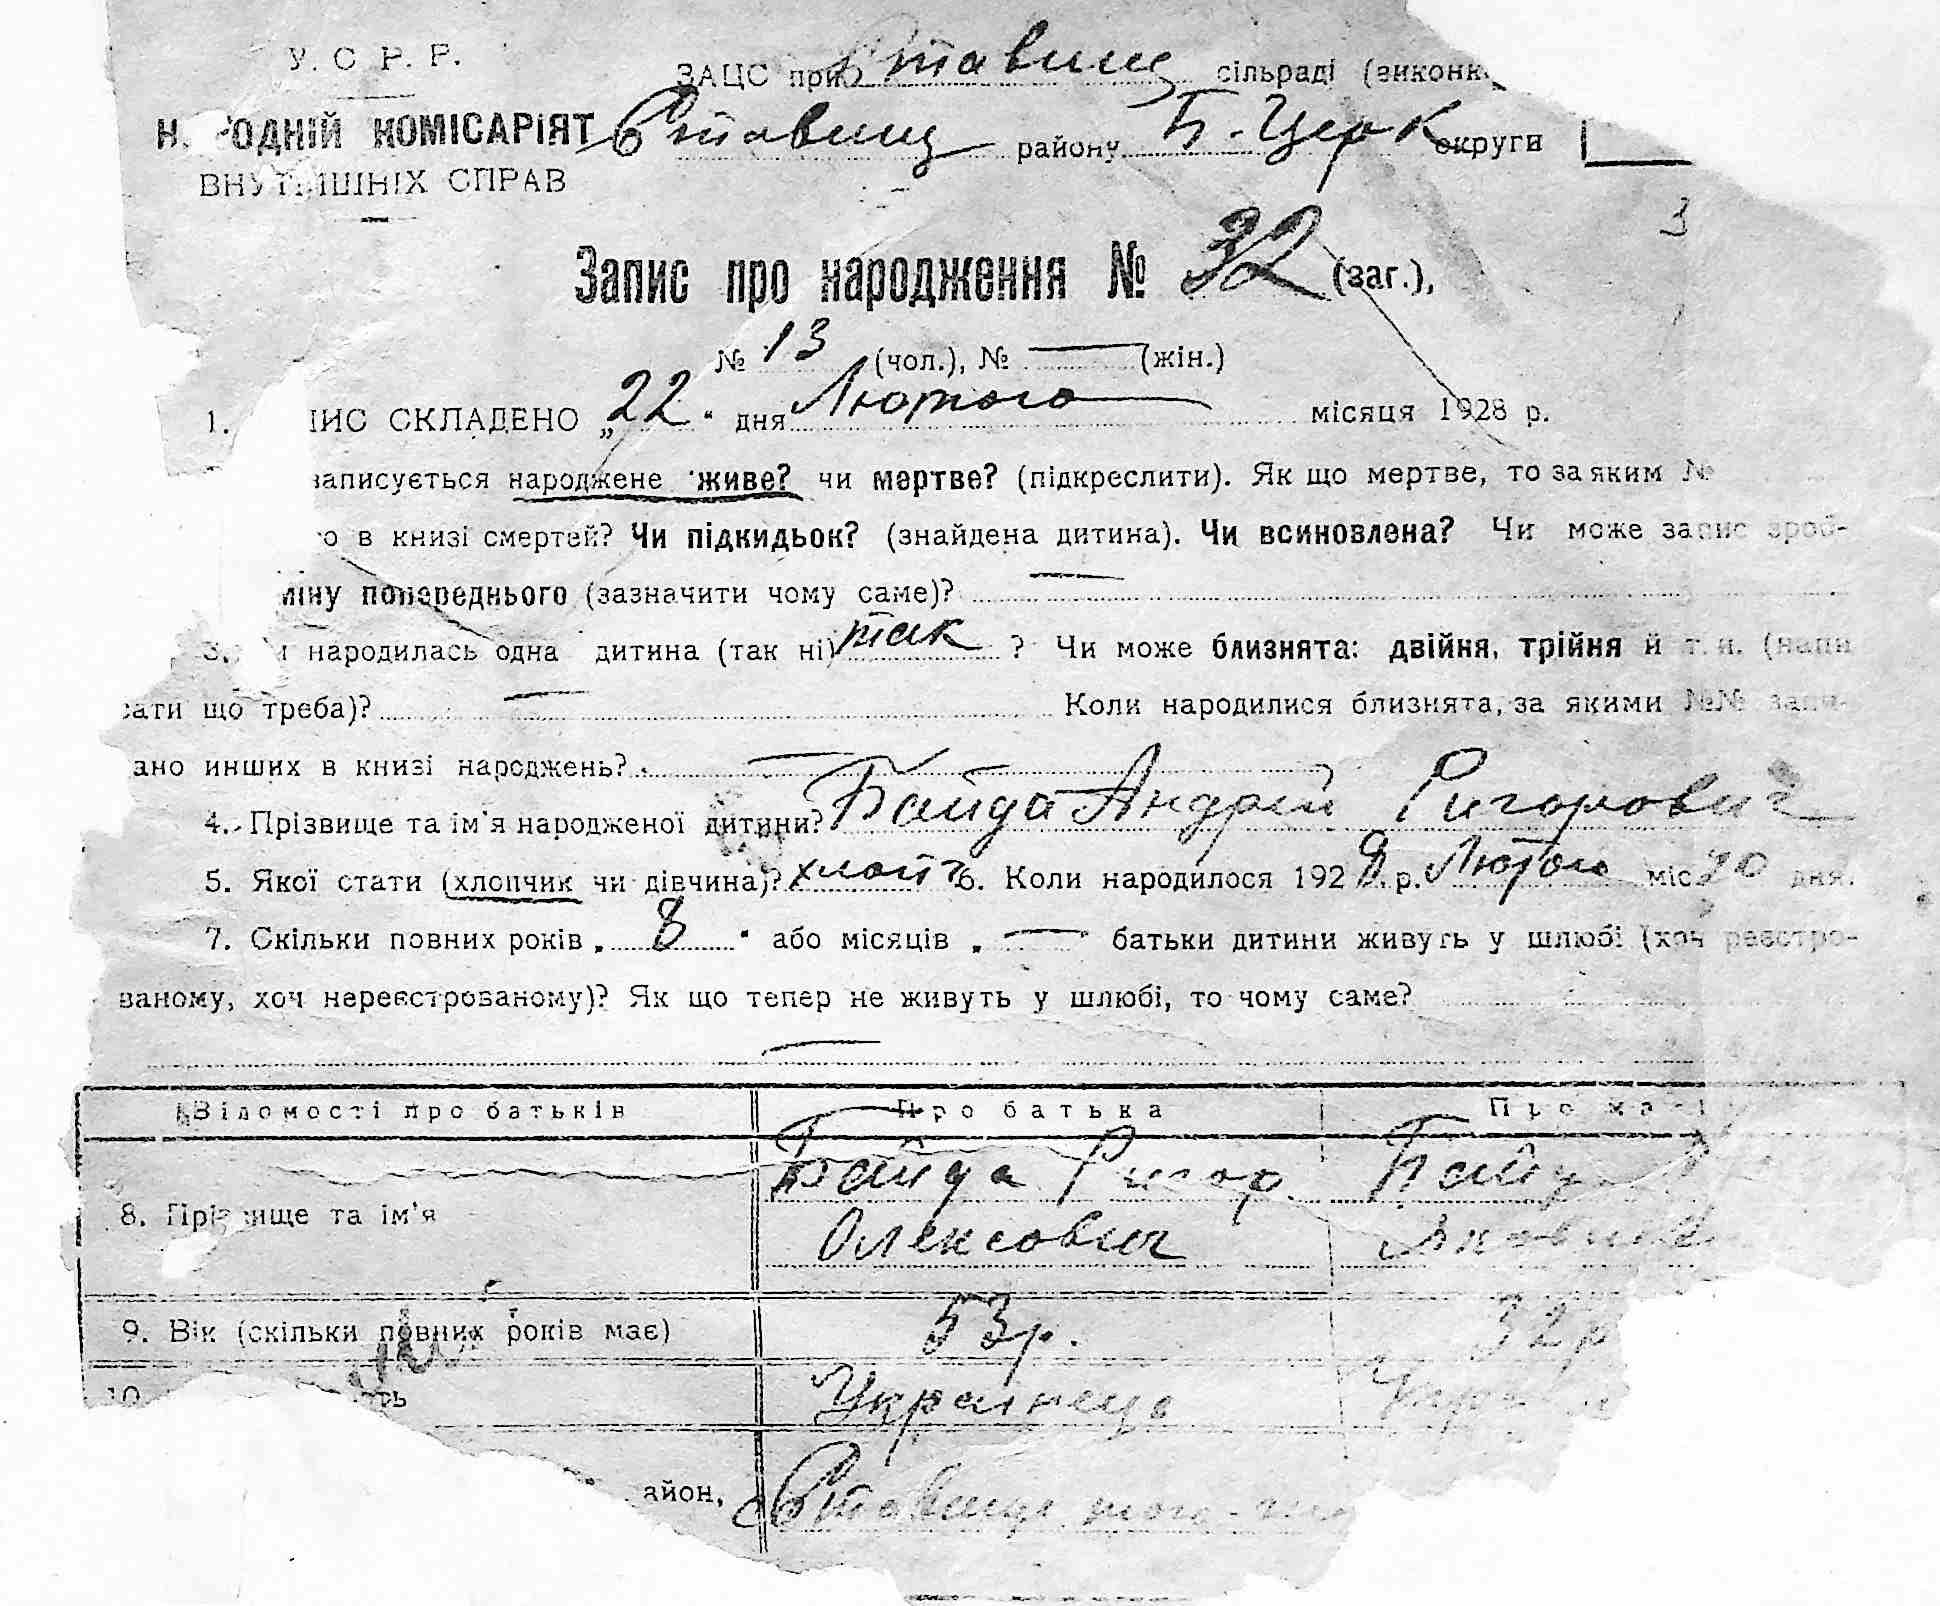 У. С. Р. Р.
ЗАЦС при Ставищ сільраді (виконк
НАРОДНІЙ КОМІСАРІЯТ Ставищ району Б. Церк округи
ВНУТРІШНІХ СПРАВ
3
Запис про народження № 32 (заг.),
№ 13 (чол.), № — (жін.)
1. ПИС СКЛАДЕНО „22“ дня Лютого місяця 1928 р.
записується народжене живе? чи мертве? (підкреслити). Як що мертве, то за яким №
о в книзі смертей? Чи підкидьок? (знайдена дитина). Чи всиновлена? Чи може запис зроб-
міну попереднього (зазначити чому саме)? —
3. народилась одна дитина (так ні) так ? Чи може близнята: двійня, трійня й т. и. (напи
сати що треба)? — Коли народилися близнята, за якими №№ запи-
ано инших в книзі народжень? —
4. Прізвище та ім'я народженої дитини? Байда Андрій Ригорович
5. Якої стати (хлопчик чи дівчина)? хлопч 6. Коли народилося 1928 р. Лютого міс. 20 дня.
7. Скільки повних років „ 8 “ або місяців „ — батьки дитини живуть у шлюбі (хоч реєстро-
ваному, хоч нереєстрованому)? Як що тепер не живуть у шлюбі, то чому саме?
—
Відомості про батьків Про батька Про ма
8. Прізвище та ім'я Байда Ригор Олексович Байд
9. Вік (скільки повних років має) 53 р. 32 р
10. ть Українець Укра
айон, с Ставище того-